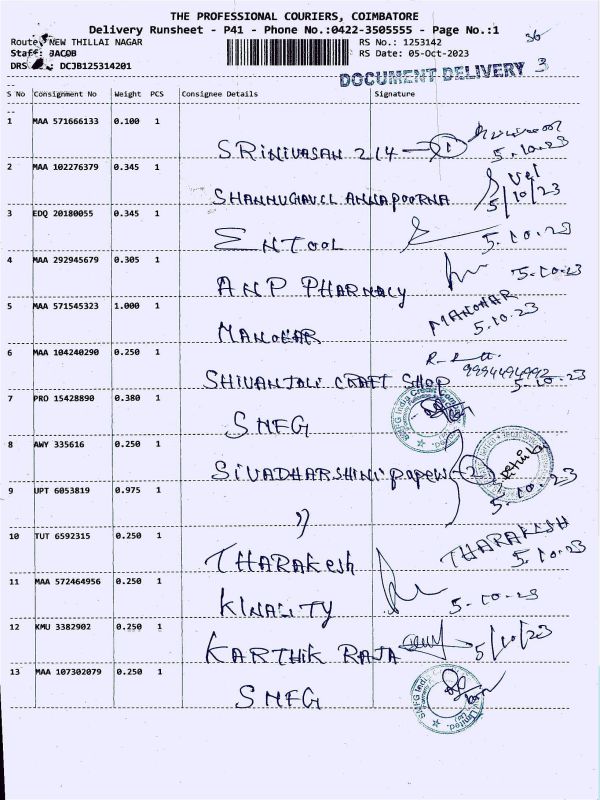 THE PROFESSIONAL COURIERS, COIMBATORE
Delivery Runsheet - P41 - Phone No.:0422-3505555 - Page No.:1
Route: NEW THILLAI NAGAR RS No.: 1253142 36
Staff: JACOB RS Date: 05-Oct-2023
DRS DCJB125314201 DOCUMENT DELIVERY 3
S No Consignment No Weight PCS Consignee Details Signature
1 MAA 571666133 0.100 1
SRINIVASAN 214 1 5.10.23
2 MAA 102276379 0.345 1
SHANMUGAVEL ANNAPOORNA Vel 5/10/23
3 EDQ 20180055 0.345 1
ENTOOL 5.10.23
4 MAA 292945679 0.305 1
ANP PHARMACY 5.10.23
5 MAA 571545323 1.000 1
MANOHAR MANOHAR 5.10.23
6 MAA 104240290 0.250 1
SHIVANJALI CRAFT SHOP 9994494992 5.10.23
7 PRO 15428890 0.380 1
SMFG SMFG India Credit
8 AWY 335616 0.250 1
SIVADHARSHINI papew 2 5.10.23
9 UPT 6053819 0.975 1
"
10 TUT 6592315 0.250 1
THARAKESH THARAKESH 5.10.23
11 MAA 572464956 0.250 1
KINALITY 5.10.23
12 KMU 3382902 0.250 1
KARTHIK RAJA 5/10/23
13 MAA 107302079 0.250 1
SMFG SMFG India